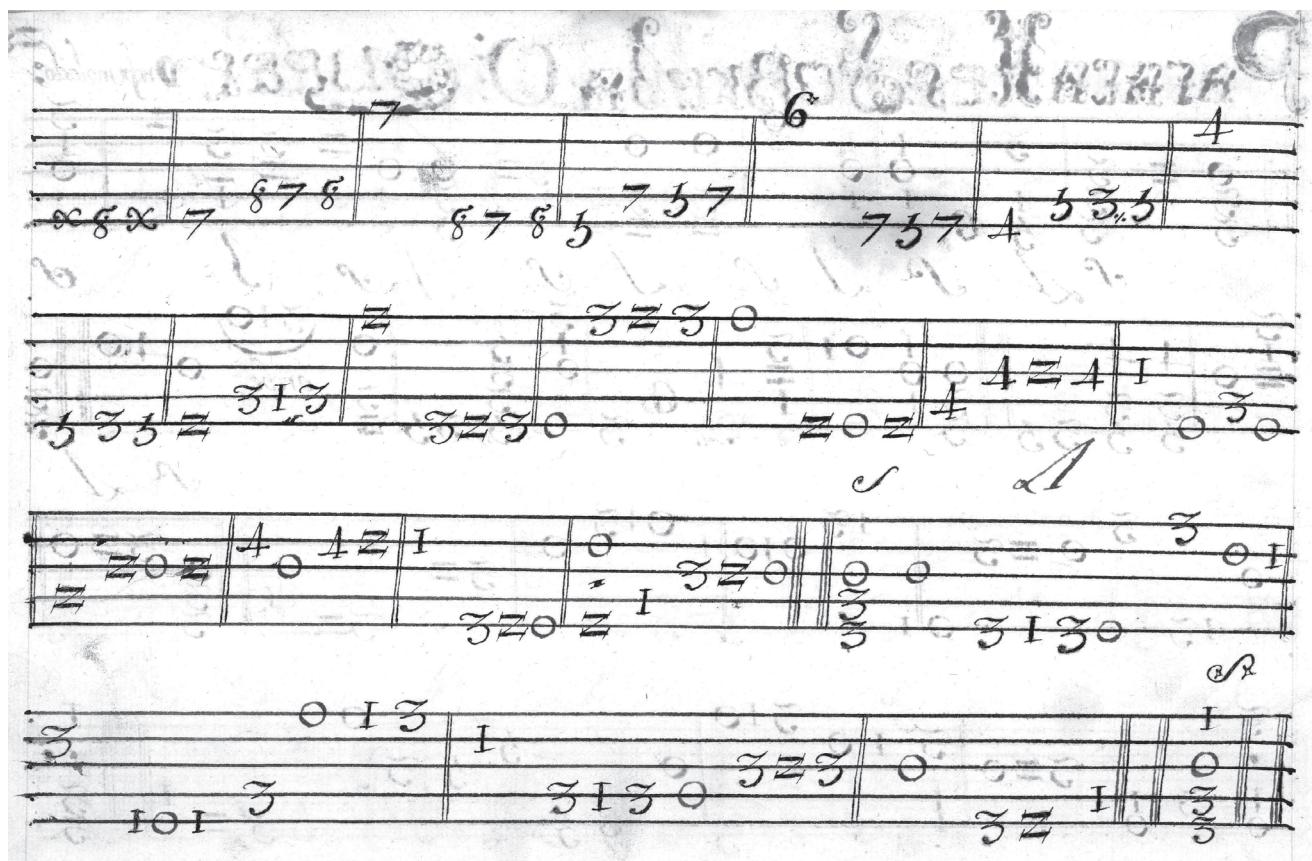 x 8 x 7 8 7 8 7 8 7 8 5 7 5 7 6 7 5 7 4 5 3 5 4
5 3 5 z 3 1 3 z 3 z 3 0 3 z 3 0 z 0 z 4 4 z 4 1 0 3 0
z z 0 z 4 0 4 z 1 3 z 0 0 z 1 3 z 0 0 3 3 0 3 1 3 0 3 0 1
3 1 0 1 3 0 1 3 1 3 1 3 0 3 z 3 0 3 z 1 1 0 3 3